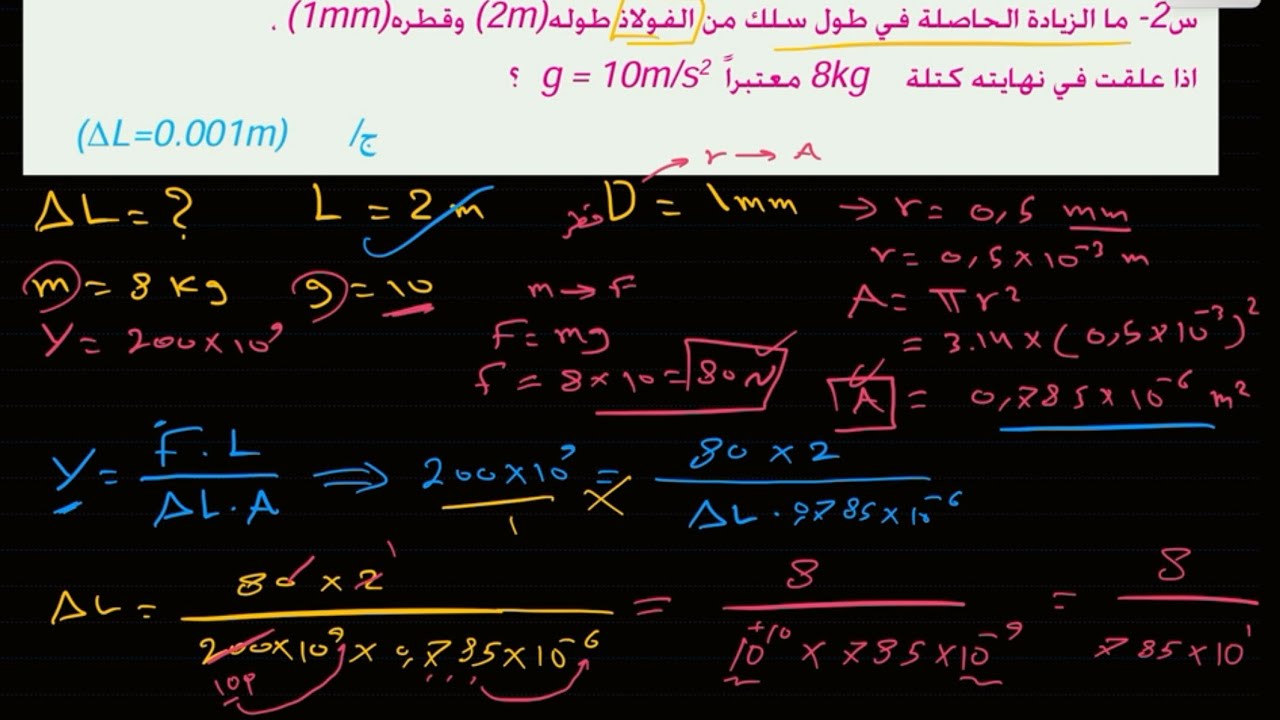 س2- ما الزيادة الحاصلة في طول سلك من الفولاذ طوله(2m) وقطره(1mm) .
اذا علقت في نهايته كتلة 8kg معتبراً g = 10m/s² ؟
ج/ (ΔL=0.001m)
r → A
ΔL = ? L = 2 m قطر D = 1mm → r = 0,5 mm
r = 0,5 × 10⁻³ m
m = 8 Kg g = 10 m → F A = πr²
Y = 200 × 10⁹ F = mg = 3.14 × (0,5 × 10⁻³)²
f = 8 × 10 = 80 N A = 0,785 × 10⁻⁶ m²
Y = F . L / ΔL . A ⇒ 200 × 10⁹ / 1 = 80 × 2 / ΔL . 0,785 × 10⁻⁶
ΔL = 80 × 2 / 200 × 10⁹ × 0,785 × 10⁻⁶ = 8 / 10⁺¹⁰ × 785 × 10⁻⁹ = 8 / 785 × 10¹